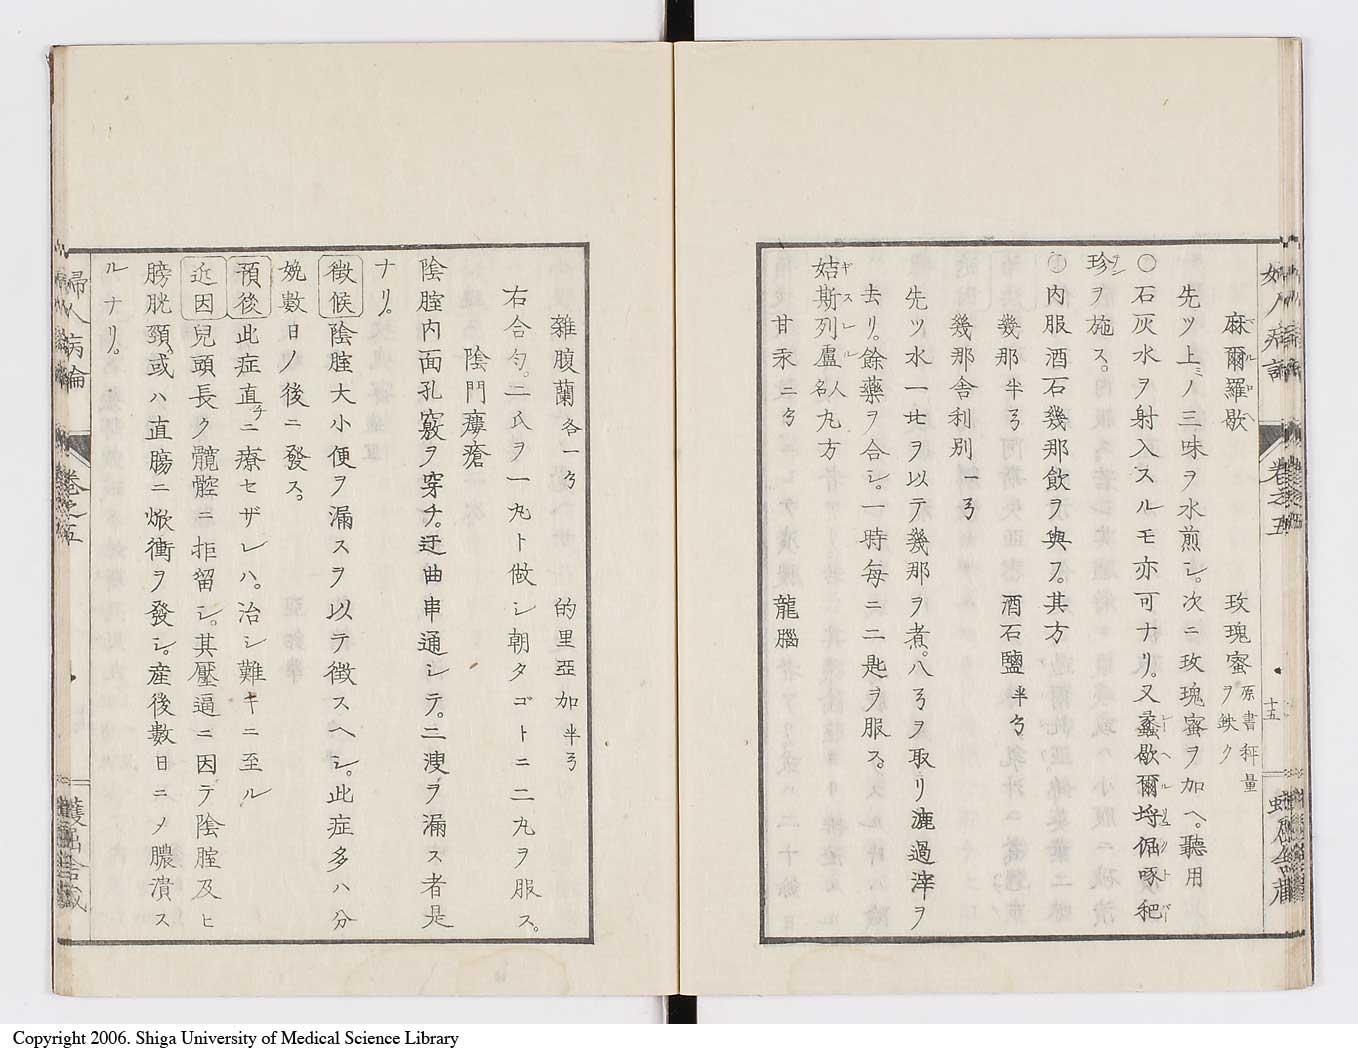 麻爾羅歇 玫瑰蜜 原書秤量ヲ缺ク
先ツ上ノ三味ヲ水煎シ。次ニ玫瑰蜜ヲ加ヘ。聽用
〇石灰水ヲ射入スルモ亦可ナリ。又蠡歇爾埒倔啄玐
珍ヲ施ス。
〇内服酒石幾那飲ヲ與フ。其方
幾那 半 酒石鹽 半
幾那舎利別 一
先ツ水一ヲ以テ幾那ヲ煮。八ヲ取リ漉過滓ヲ
去リ。餘藥ヲ合シ。一時毎ニ二匙ヲ服ス。
姞斯列盧 人名 丸方
甘汞 二 龍腦
婦人病論 卷之五 十五
雜腹蘭 各一 的里亞加 半
右合勻。二氏ヲ一丸ト做シ朝夕ゴトニ二丸ヲ服ス。
陰門瘻瘡
陰腟内面孔竅ヲ穿チ。迂曲串通シテ。二溲ヲ漏ス者是
ナリ。
徴候 陰腟大小便ヲ漏スヲ以テ徴スヘシ。此症多ハ分
娩數日ノ後ニ發ス。
預後 此症直チニ療セザレハ。治シ難キニ至ル
近因 兒頭長ク髖腔ニ拒留シ。其壓逼ニ因テ陰腟及ヒ
膀胱頸。或ハ直腸ニ焮衝ヲ發シ。産後數日ニメ膿潰ス
ルナリ。
婦人病論 卷之五
Copyright 2006. Shiga University of Medical Science Library